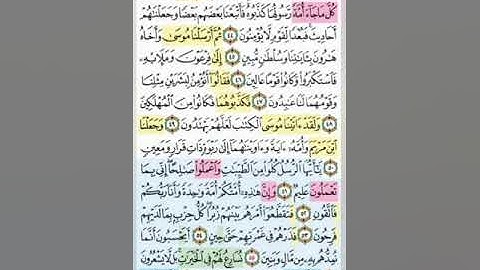 كُلَّ مَا جَآءَ أُمَّةً رَّسُولُهَا كَذَّبُوهُ فَأَتْبَعْنَا بَعْضَهُم بَعْضًا وَجَعَلْنَٰهُمْ
أَحَادِيثَ فَبُعْدًا لِّقَوْمٍ لَّا يُؤْمِنُونَ ٤٤ ثُمَّ أَرْسَلْنَا مُوسَىٰ وَأَخَاهُ
هَٰرُونَ بِـَٔايَٰتِنَا وَسُلْطَٰنٍ مُّبِينٍ ٤٥ إِلَىٰ فِرْعَوْنَ وَمَلَإِيْهِۦ
فَٱسْتَكْبَرُوا۟ وَكَانُوا۟ قَوْمًا عَالِينَ ٤٦ فَقَالُوٓا۟ أَنُؤْمِنُ لِبَشَرَيْنِ مِثْلِنَا
وَقَوْمُهُمَا لَنَا عَٰبِدُونَ ٤٧ فَكَذَّبُوهُمَا فَكَانُوا۟ مِنَ ٱلْمُهْلَكِينَ
٤٨ وَلَقَدْ ءَاتَيْنَا مُوسَى ٱلْكِتَٰبَ لَعَلَّهُمْ يَهْتَدُونَ ٤٩ وَجَعَلْنَا
ٱبْنَ مَرْيَمَ وَأُمَّهُۥٓ ءَايَةً وَءَاوَيْنَٰهُمَآ إِلَىٰ رَبْوَةٍ ذَاتِ قَرَارٍ وَمَعِينٍ
٥٠ يَٰٓأَيُّهَا ٱلرُّسُلُ كُلُوا۟ مِنَ ٱلطَّيِّبَٰتِ وَٱعْمَلُوا۟ صَٰلِحًا إِنِّى بِمَا
تَعْمَلُونَ عَلِيمٌ ٥١ وَإِنَّ هَٰذِهِۦٓ أُمَّتُكُمْ أُمَّةً وَٰحِدَةً وَأَنَا۠ رَبُّكُمْ
فَٱتَّقُونِ ٥٢ فَتَقَطَّعُوٓا۟ أَمْرَهُم بَيْنَهُمْ زُبُرًا كُلُّ حِزْبٍۭ بِمَا لَدَيْهِمْ
فَرِحُونَ ٥٣ فَذَرْهُمْ فِى غَمْرَتِهِمْ حَتَّىٰ حِينٍ ٥٤ أَيَحْسَبُونَ أَنَّمَا
نُمِدُّهُم بِهِۦ مِن مَّالٍ وَبَنِينَ ٥٥ نُسَارِعُ لَهُمْ فِى ٱلْخَيْرَٰتِ بَل لَّا يَشْعُرُونَ